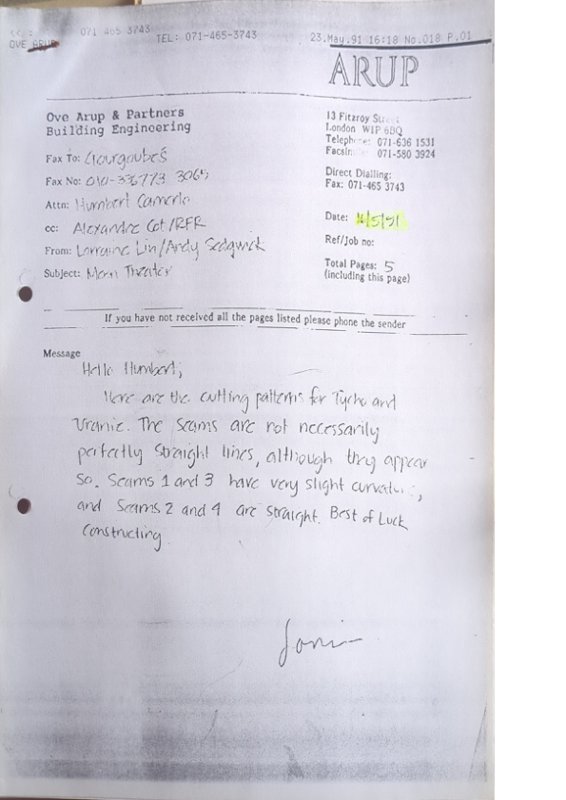 cc: 071 465 3743
OVE ARUP TEL: 071-465-3743 23.May.91 16:18 No.018 P.01
ARUP
Ove Arup & Partners
Building Engineering
13 Fitzroy Street
London W1P 6BQ
Telephone: 071-636 1531
Facsimile: 071-580 3924
Direct Dialling:
Fax: 071-465 3743
Fax To: Gourgoubes
Fax No: 010-336773 3065
Attn: Humbert Camerlo
cc: Alexandre Cot/RFR
From: Lorraine Lin/Andy Sedgwick
Subject: Moon Theater
Date: /5/91
Ref/Job no:
Total Pages: 5
(including this page)
If you have not received all the pages listed please phone the sender
Message
Hello Humbert,
Here are the cutting patterns for Tycho and
Uranie. The seams are not necessarily
perfectly straight lines, although they appear
so. Seams 1 and 3 have very slight curvature,
and Seams 2 and 4 are straight. Best of Luck
constructing.